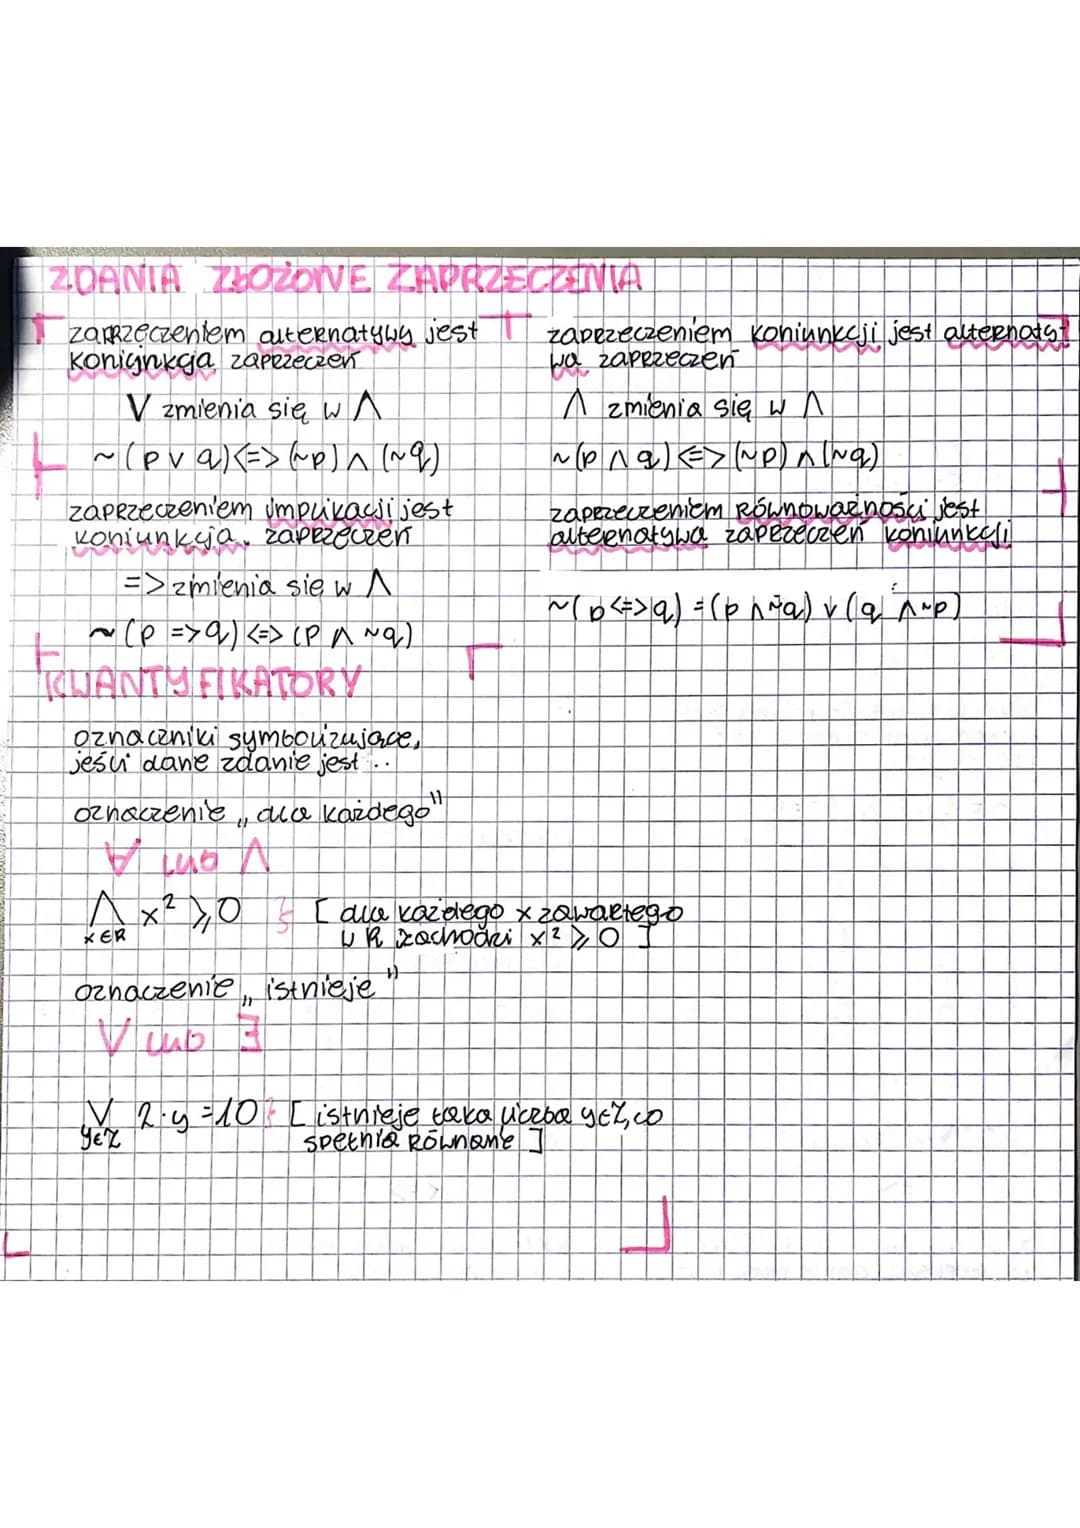 ZDANIA ZŁOŻONE ZAPRZECZENIA
zaprzeczeniem alternatywy jest
koniunkcja zaprzeczeń
V zmienia się w Λ
~(p v q)<=>(~p)Λ(~q)
zaprzeczeniem implikacji jest
koniunkcja zaprzeczeń
=> zmienia się w Λ
~(p =>q)<=>(p Λ ~q)
zaprzeczeniem koniunkcji jest alternaty-
wa zaprzeczeń
Λ zmienia się w Λ
~(p Λ q)<=>(~p)Λ(~q)
zaprzeczeniem równoważności jest
alternatywa zaprzeczeń koniunkcji
~(p<=>q)=(p Λ ~q) v (q Λ ~p)
KWANTYFIKATORY
oznaczniki symbolizujące,
jeśli dane zdanie jest ..
oznaczenie „dla każdego"
∀ lub Λ
Λ x² ⩾ 0 } [dla każdego x zawartego
x∈R w R zachodzi x² ⩾ 0 ]
oznaczenie „istnieje"
V lub ∃
V 2·y=10 } [istnieje taka liczba y∈Z, co
y∈Z spełnia równanie ]